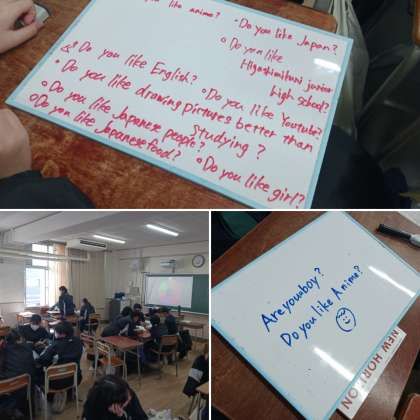 you like anime?
• Do you like Japan?
• Do you like
Higashimitani junior
high school?
Do you like English?
• Do you like Youtube?
• Do you like drawing pictures better than
studying?
• Do you like Japanese people?
• Do you like Japanese food?
• Do you like girl?
Are you boy?
Do you like Anime?
NEW HORIZON